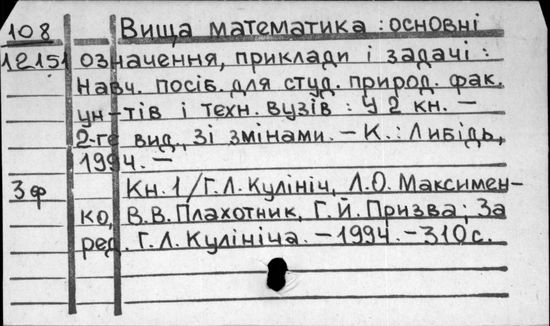 108 Вища математика : основні
12151 означення, приклади і задачі :
Навч. посіб. для студ. природ. фак.
ун-тів і техн. вузів : У 2 кн. —
2-ге вид., зі змінами. — К. : Либідь,
1994. —
3ф Кн. 1 / Г. Л. Кулініч, Л. О. Максимен-
ко, В. В. Плахотник, Г. Й. Призва ; За
ред. Г. Л. Кулініча. — 1994. — 310 с.